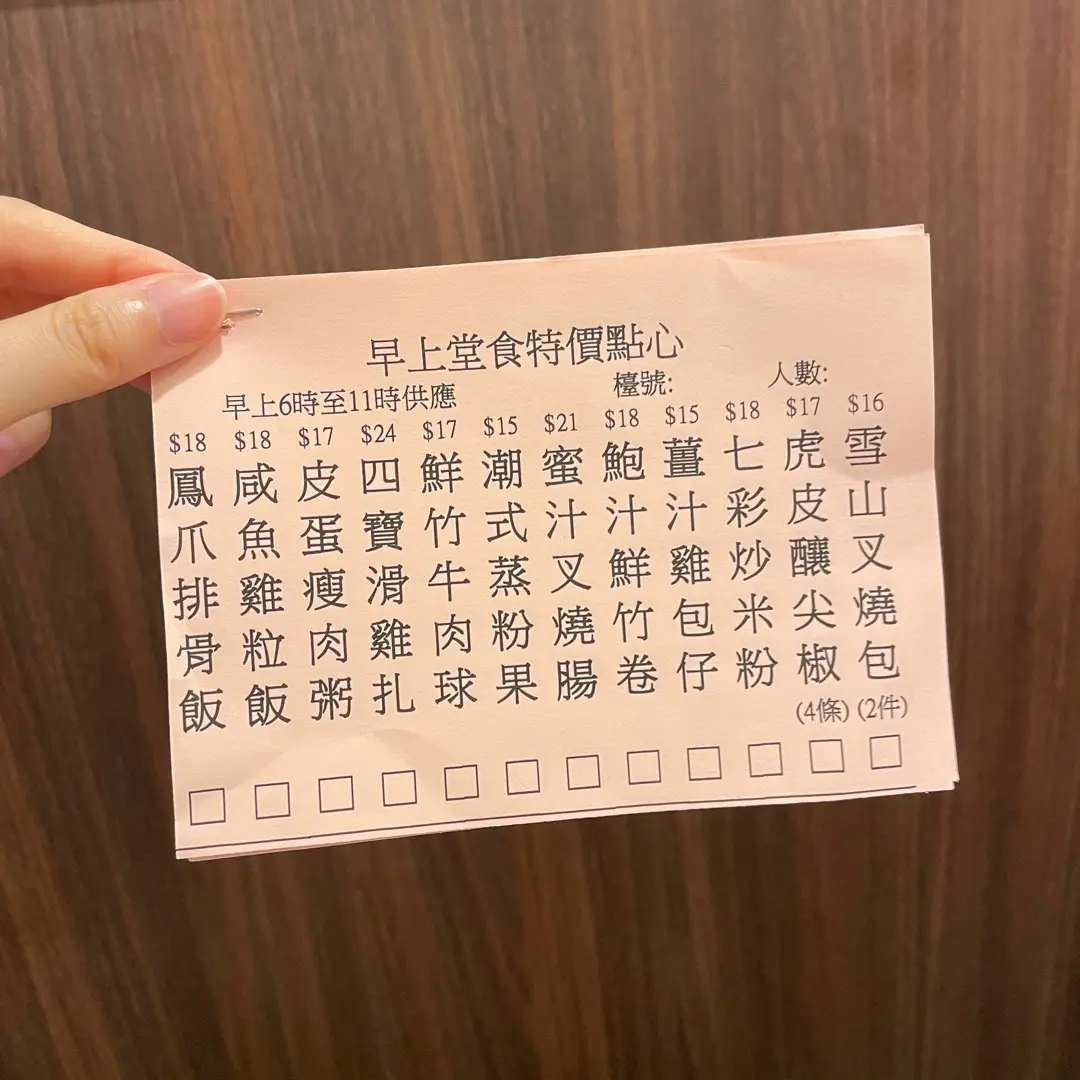 早上堂食特價點心
早上6時至11時供應
檯號:
人數:
$16
雪山叉燒包
(2件)
$17
虎皮釀尖椒
(4條)
$18
七彩炒米粉
$15
薑汁雞包仔
$18
鮑汁鮮竹卷
$21
蜜汁叉燒腸
$15
潮式蒸粉果
$17
鮮竹牛肉球
$24
四寶滑雞扎
$17
皮蛋瘦肉粥
$18
咸魚雞粒飯
$18
鳳爪排骨飯